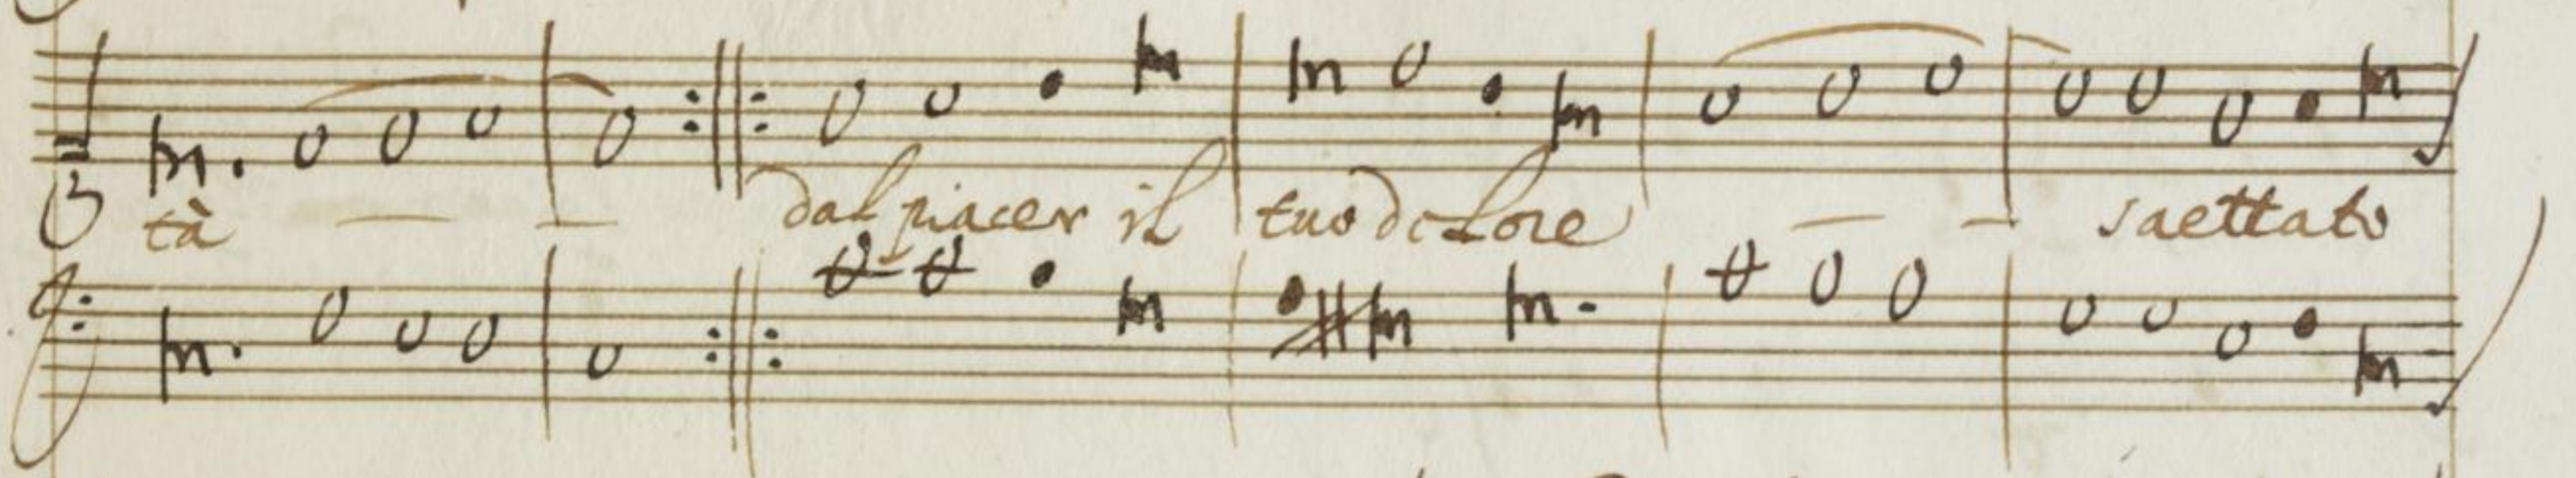 tà — — dal piacer il tuo dolore — — saettato